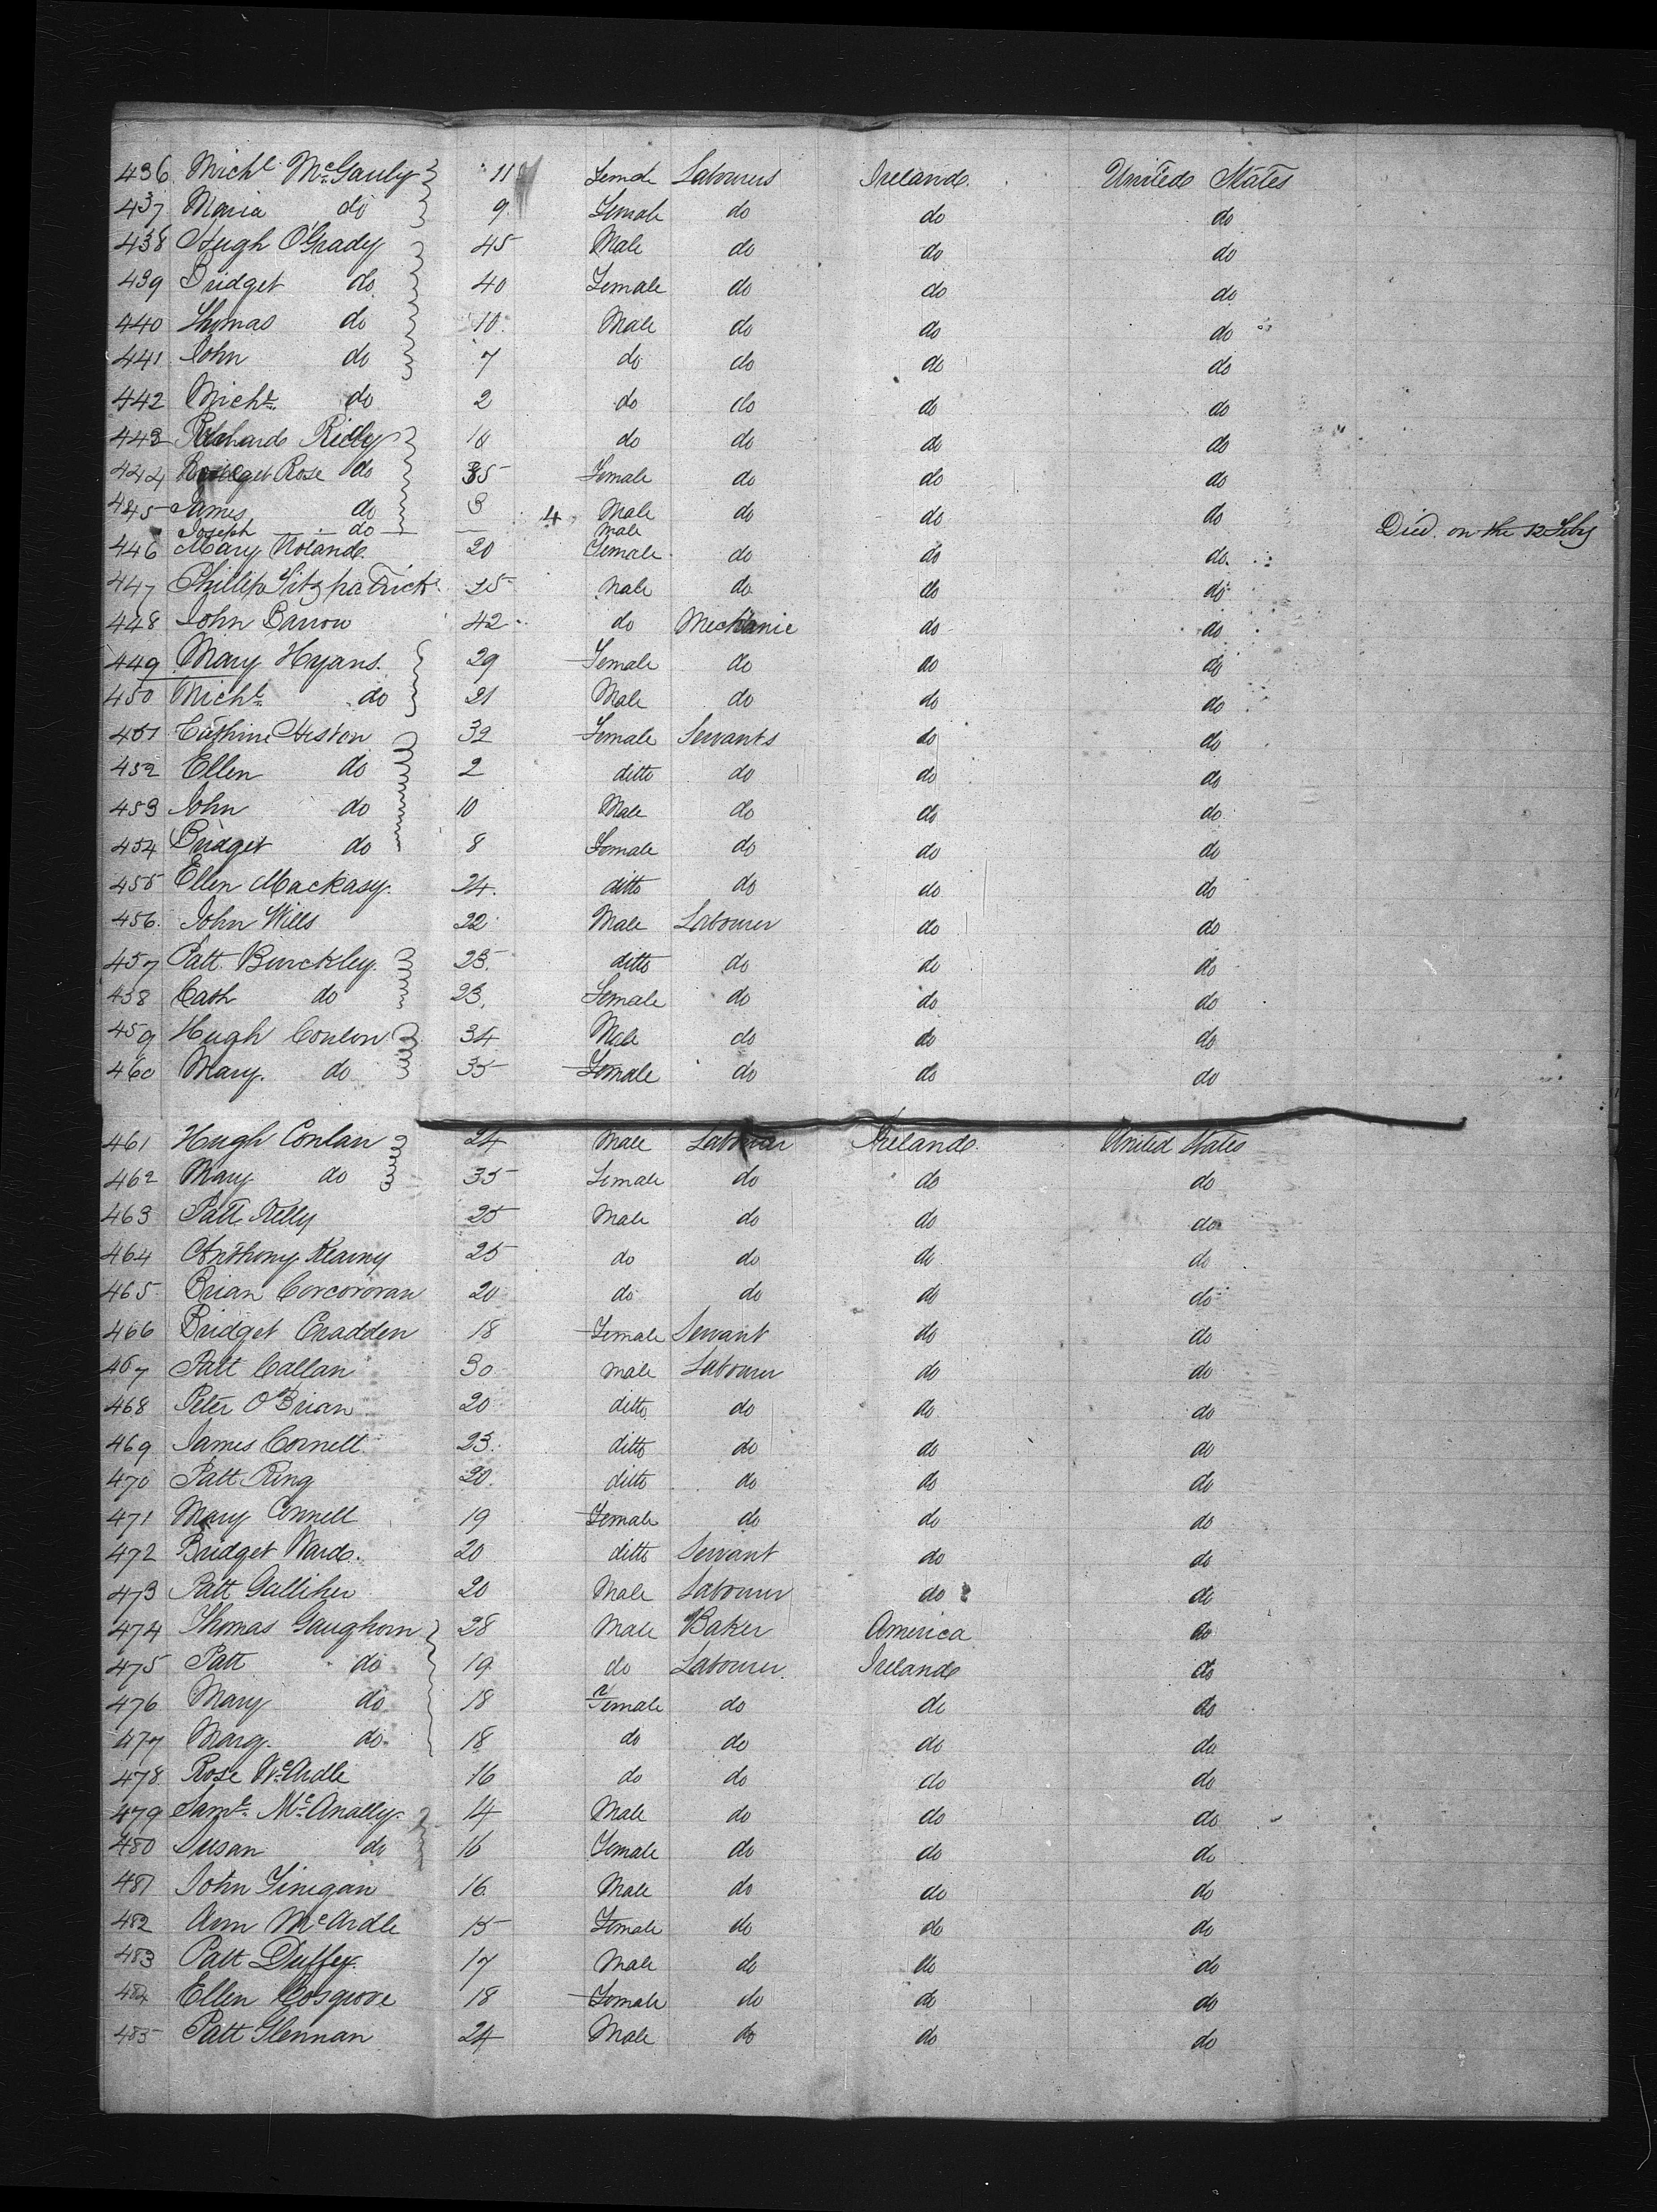 436 Michl McGauly 11 Female Labourers Ireland United States
437 Maria do 9 Female do do do
438 Hugh O'Grady 45 Male do do do
439 Bridget do 40 Female do do do
440 Thomas do 10 Male do do do
441 John do 7 do do do do
442 Michl do 2 do do do do
443 Richard Reilly 10 do do do do
444 Bridget Rose do 35 Female do do do
445 James do 3 4 Male do do do
Joseph do — Male Died on the 12 Feby
446 Mary Noland 20 Female do do do
447 Phillip Fitzpatrick 25 Male do do do
448 John Barrow 42 do Mechanic do do
449 Mary Hyans 29 Female do do do
450 Michl do 21 Male do do do
451 Cathrine Heston 32 Female Servants do do
452 Ellen do 2 ditto do do do
453 John do 10 Male do do do
454 Bridget do 8 Female do do do
455 Ellen Mackasy 24 ditto do do do
456 John Wills 22 Male Labourer do do
457 Patt Burckley 23 ditto do do do
458 Cath do 23 Female do do do
459 Hugh Conlon 34 Male do do do
460 Mary do 35 Female do do do
461 Hugh Conlan 24 Male Labourer Ireland United States
462 Mary do 35 Female do do do
463 Patt Kelly 25 Male do do do
464 Anthony Kearny 25 do do do do
465 Brian Corcororan 20 do do do do
466 Bridget Cradden 18 Female Servant do do
467 Patt Callan 30 Male Labourer do do
468 Peter O'Brian 20 ditto do do do
469 James Cornell 23 ditto do do do
470 Patt Ring 20 ditto do do do
471 Mary Connell 19 Female do do do
472 Bridget Ward 20 ditto Servant do do
473 Patt Galliher 20 Male Labourer do do
474 Thomas Gaughorn 28 Male Baker America do
475 Patt do 19 do Labourer Ireland do
476 Mary do 18 Female do do do
477 Marg. do 18 do do do do
478 Rose McArdle 16 do do do do
479 Saml McAnally 14 Male do do do
480 Susan do 16 Female do do do
481 John Finigan 16 Male do do do
482 Ann McArdle 15 Female do do do
483 Patt Duffey 17 Male do do do
484 Ellen Cosgrove 18 Female do do do
485 Patt Glennan 24 Male do do do